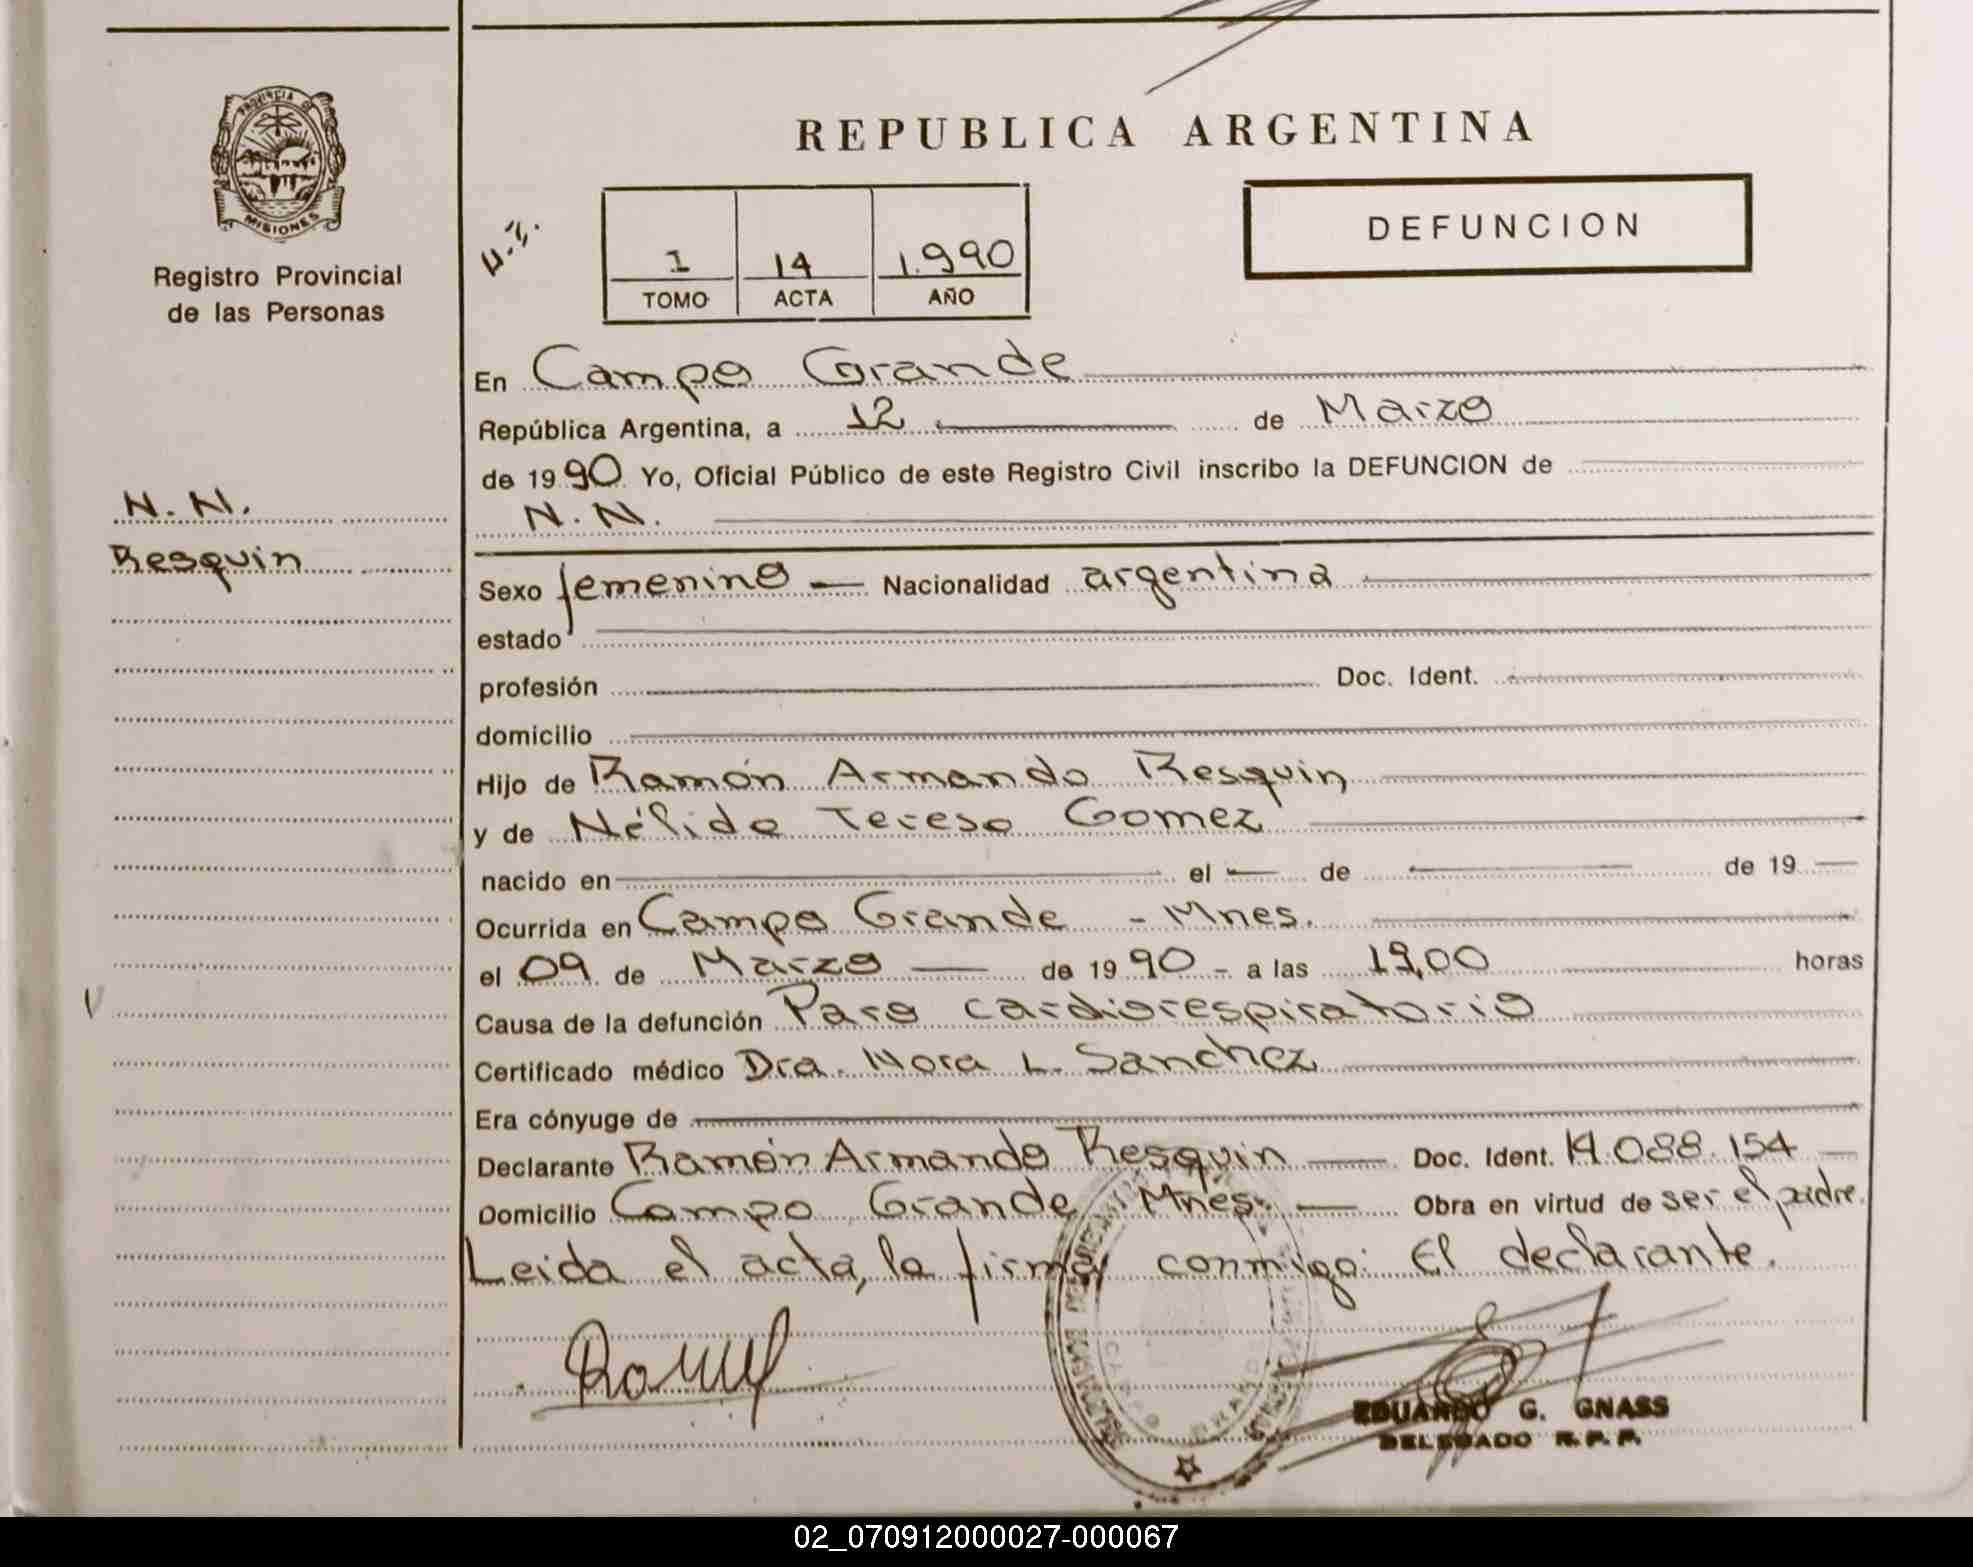 PROVINCIA DE
MISIONES
Registro Provincial
de las Personas
N. N.
Resquin
REPUBLICA ARGENTINA
1 14 1.990
TOMO ACTA AÑO
DEFUNCION
En Campo Grande
República Argentina, a 12 de Marzo
de 1990 Yo, Oficial Público de este Registro Civil inscribo la DEFUNCION de
N. N.
Sexo femenino Nacionalidad argentina
estado
profesión Doc. Ident.
domicilio
Hijo de Ramón Armando Resquin
y de Nélida Teresa Gomez
nacido en el de de 19
Ocurrida en Campo Grande - Mnes.
el 09 de Marzo de 1990 - a las 19,00 horas
Causa de la defunción Paro cardiorespiratorio
Certificado médico Dra. Nora L. Sanchez
Era cónyuge de
Declarante Ramón Armando Resquin Doc. Ident. 14.088.154
Domicilio Campo Grande Mnes. Obra en virtud de ser el padre.
Leida el acta, la firma conmigo: El declarante.
EDUARDO G. GNASS
DELEGADO R. P. P.
02_070912000027-000067